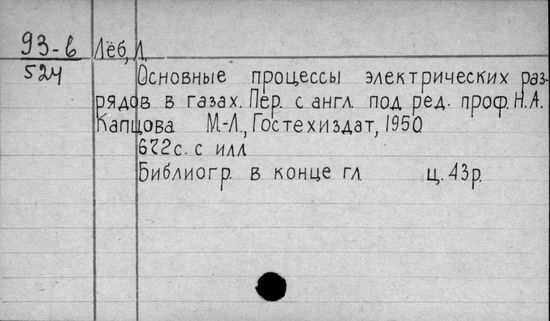 93-в
524
Лёб, Л.
Основные процессы электрических раз
рядов в газах. Пер. с англ. под ред. проф. Н.А.
Капцова М.-Л., Гостехиздат, 1950
672с. с илл
Библиогр. в конце гл ц. 43р.